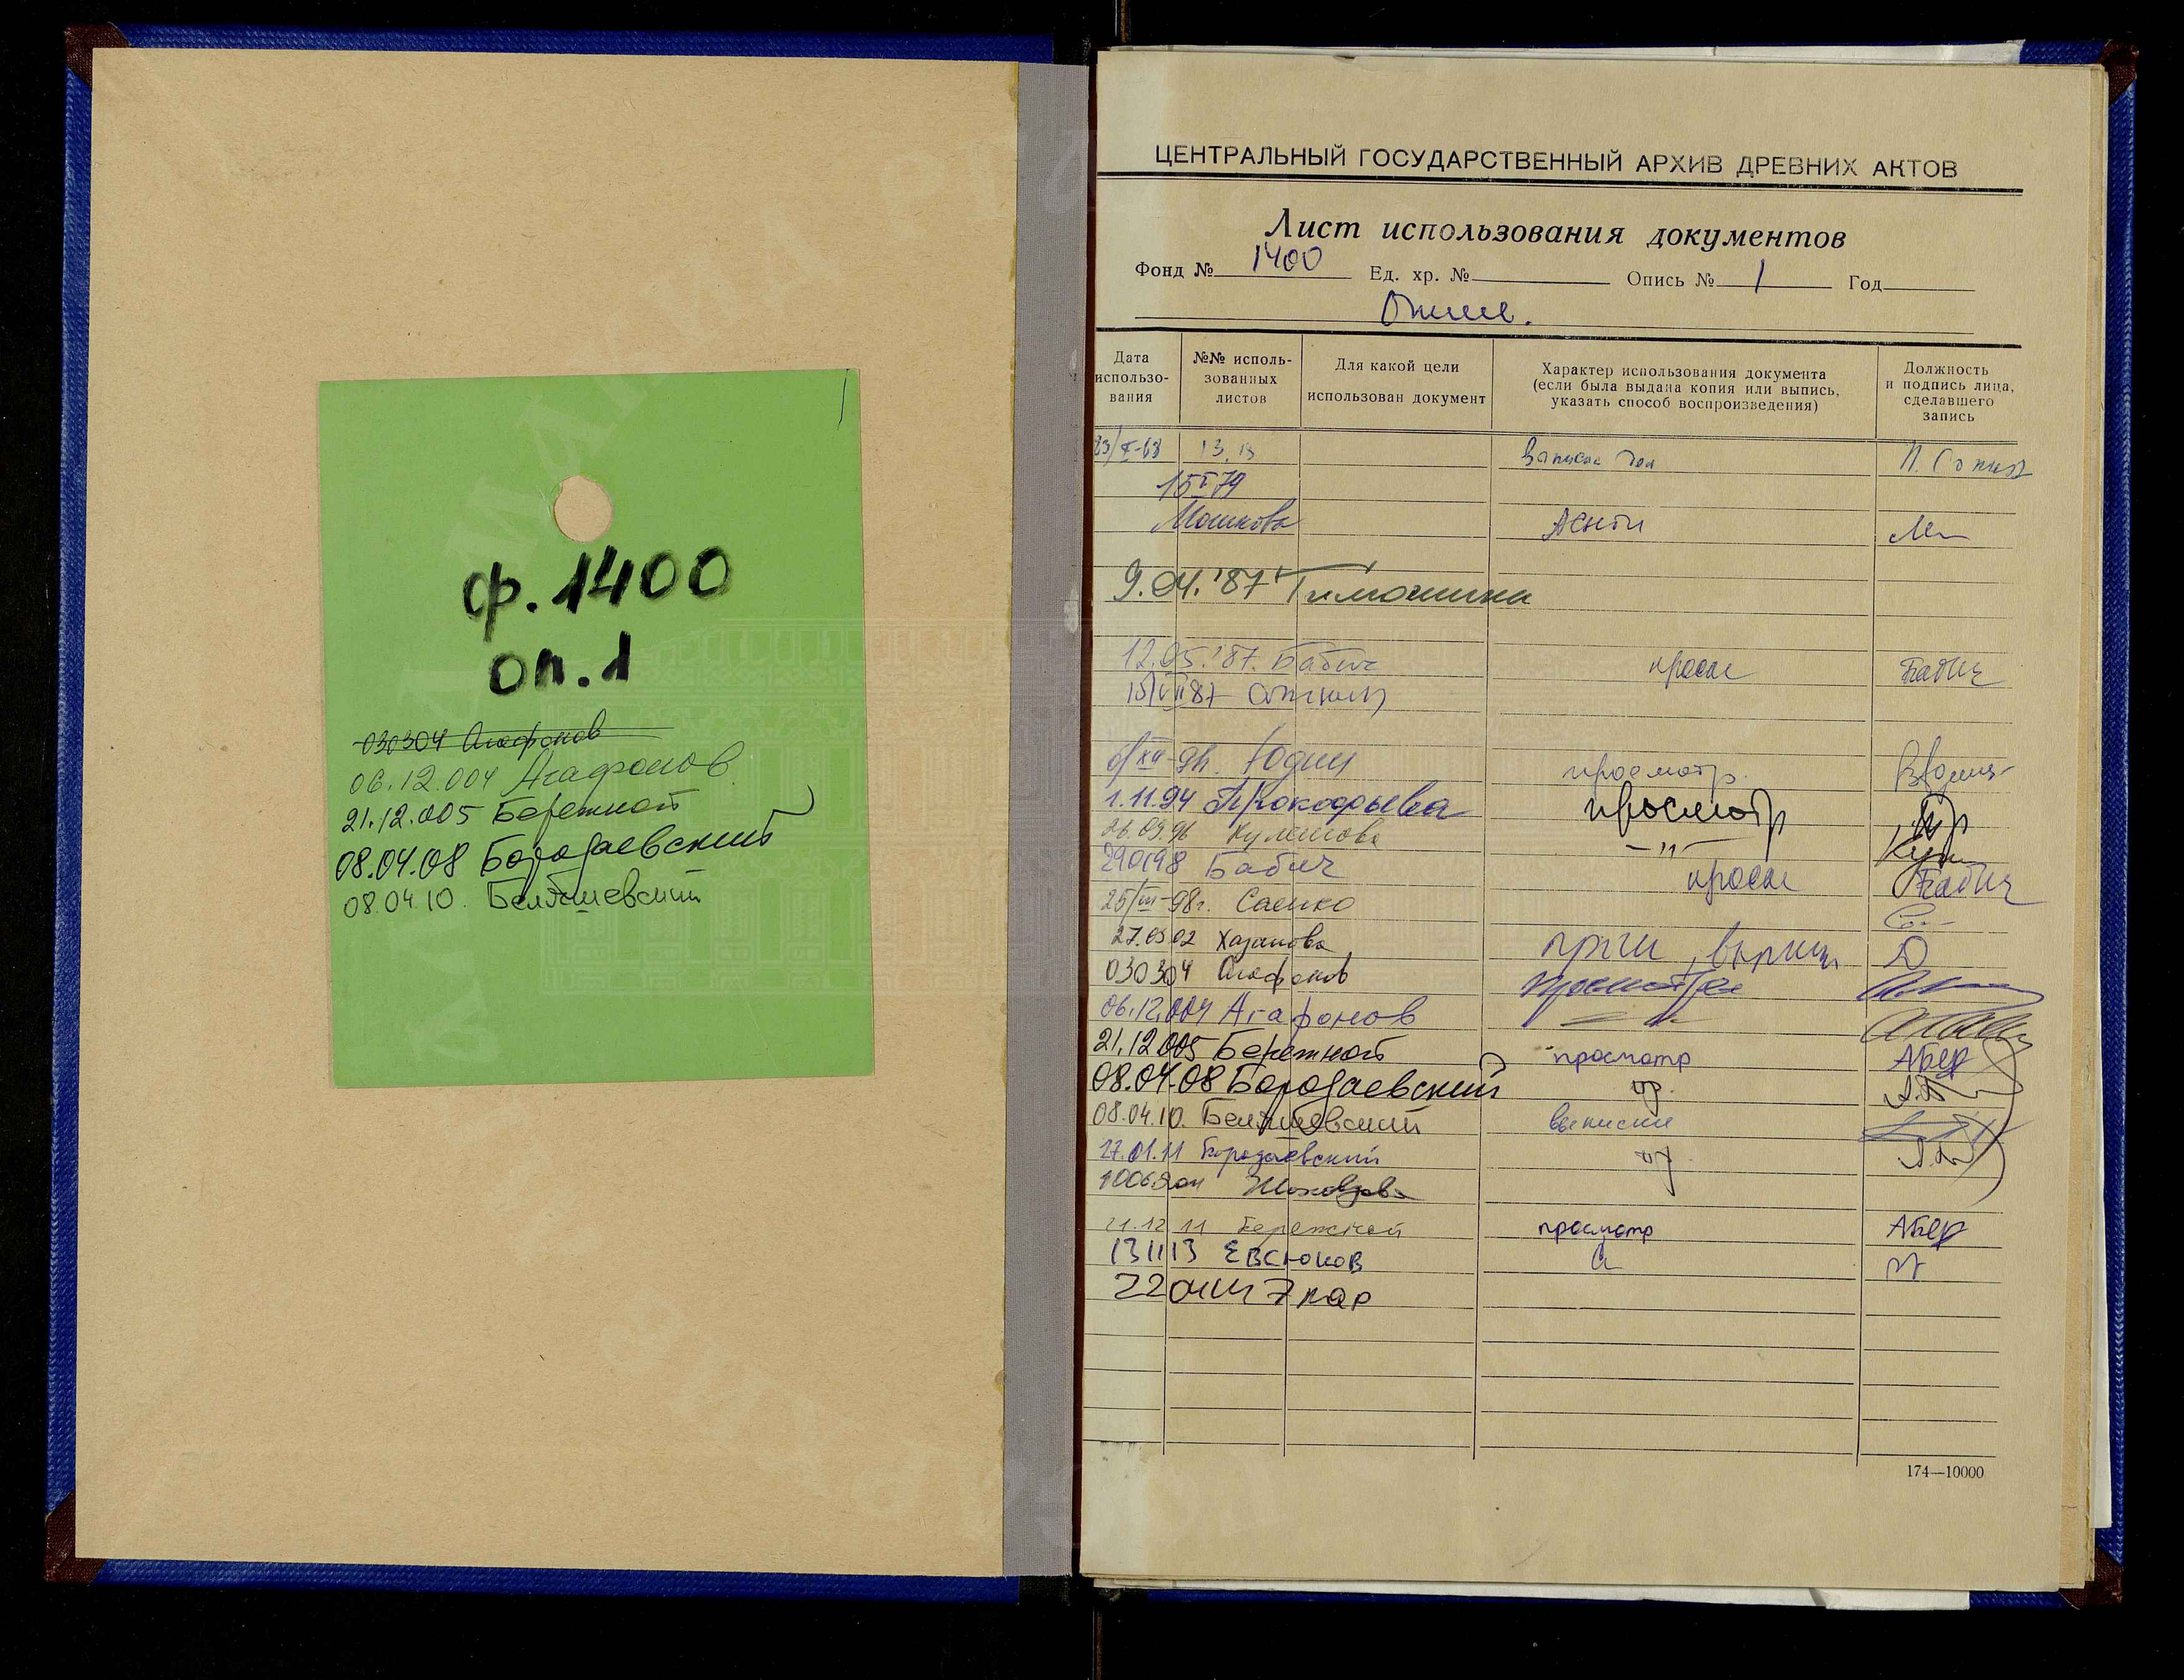 ф. 1400
оп. 1
030304 Агафонов
06.12.004 Агафонов
21.12.005 Бережной
08.04.08 Бородаевский
08.04.10.
ЦЕНТРАЛЬНЫЙ ГОСУДАРСТВЕННЫЙ АРХИВ ДРЕВНИХ АКТОВ
Лист использования документов
Фонд № 1400 Ед. хр. № Опись № 1 Год
Дата использо- вания
№№ исполь- зованных листов
Для какой цели использован документ
Характер использования документа (если была выдана копия или выпись, указать способ воспроизведения)
Должность и подпись лица, сделавшего запись
13, 13
15 V 79
Машкова
9.04.'87 Тимошина
12.05.'87. Бабич просм Бабич
Юдин просмотр.
1.11.94 Прокофьева просмотр
26.09.96 Кулешова —"—
290198 Бабич просм Бабич
25/III-98г. Саенко
27.0302 Хазанова
030304 Агафонов просмотр
06.12.004 Агафонов
21.12.005 Бережной просмотр АБер
08.04.08 Бородаевский
08.04.10. выписки
27.01.11 Бородаевский
21.12 11 Бережной просмотр АБер
131113 Евсюков
174—10000